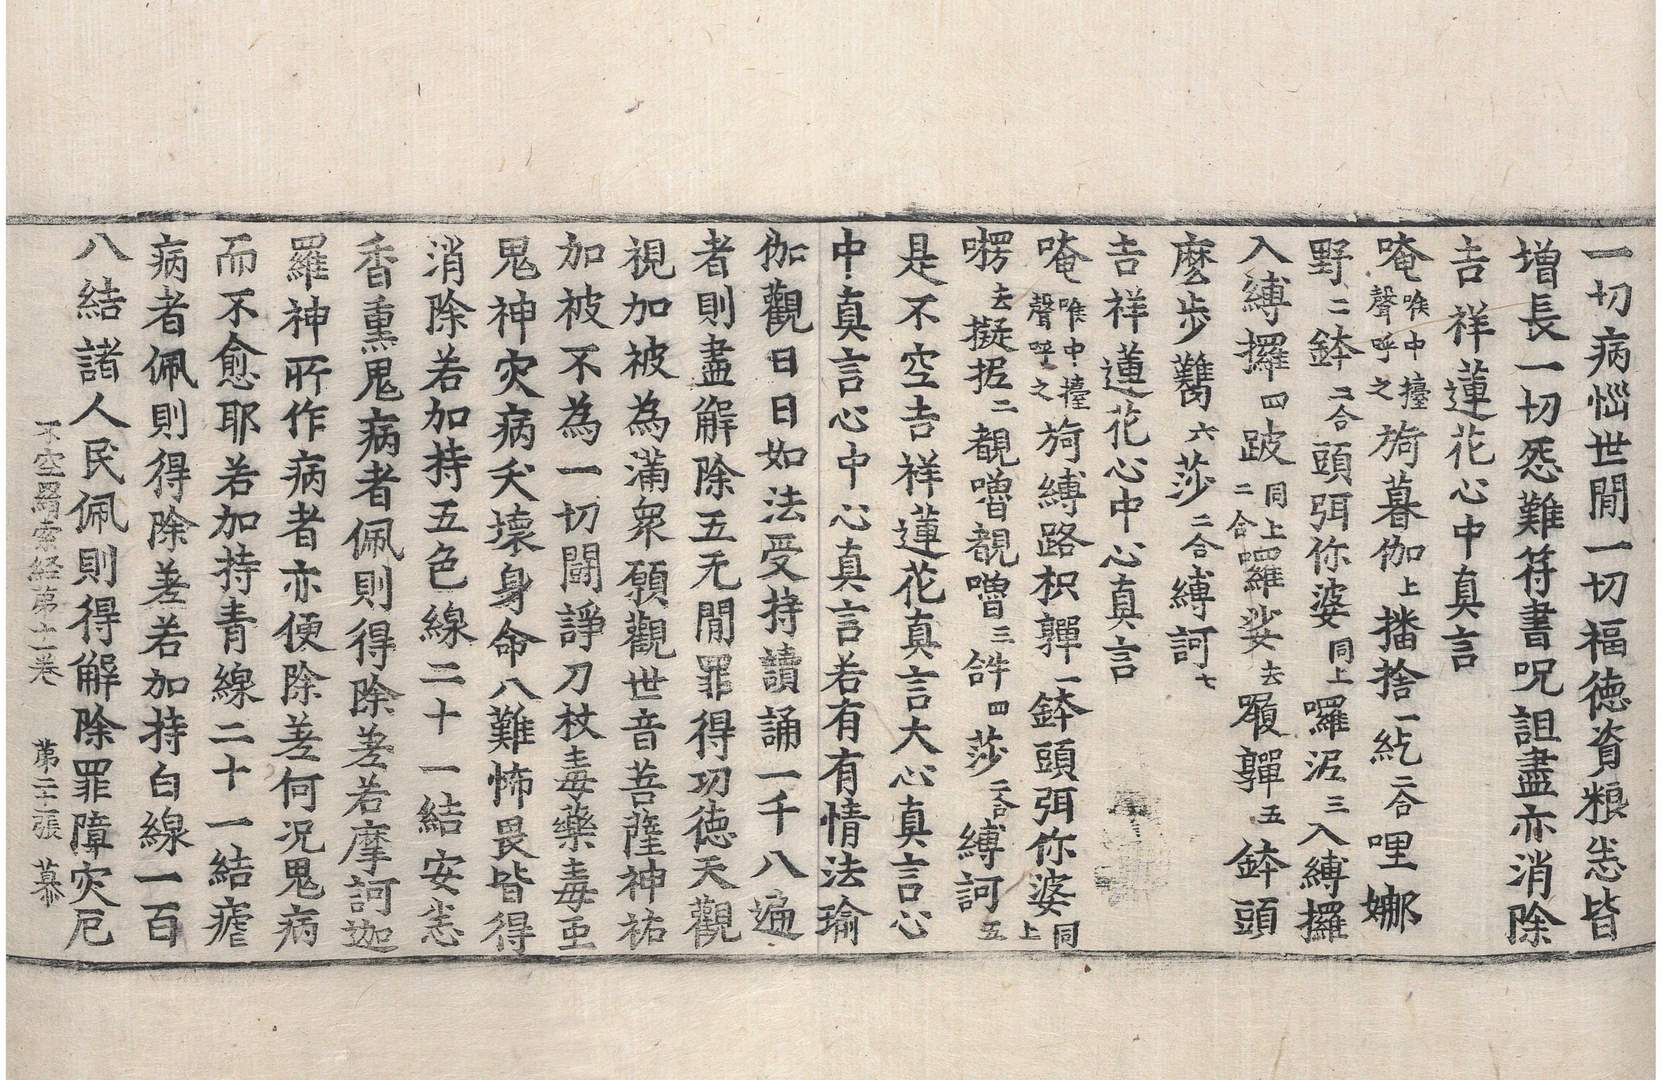 一切病惱世間一切福德資粮悉皆
增長一切怨難符書呪詛盡亦消除
吉祥蓮花心中真言
唵喉中擡聲呼之旖暮伽上播捨一紇二合哩娜
野二鉢二合頭弭你婆同上囉泥三入縛攞
入縛攞四跛同上二合囉娑去履鸅五鉢頭
麼步鸛六莎二合縛訶七
吉祥蓮花心中心真言
唵喉中擡聲呼之旖縛路枳鸅一鉢頭弭你婆同上
㗚去擬抳二覩嚕覩嚕三𤙖四莎二合縛訶五
是不空吉祥蓮花真言大心真言心
中真言心中心真言若有有情法瑜
伽觀日日如法受持讀誦一千八遍
者則盡解除五无間罪得功德天觀
視加被為滿衆願觀世音菩薩神祐
加被不為一切鬪諍刀杖毒藥毒䖝
鬼神灾病夭壞身命八難怖畏皆得
消除若加持五色線二十一結安悉
香熏鬼病者佩則得除差若摩訶迦
羅神所作病者亦便除差何況鬼病
而不愈耶若加持青線二十一結瘧
病者佩則得除差若加持白線一百
八結諸人民佩則得解除罪障灾厄
不空罥索経第十一卷 第二十張 慕